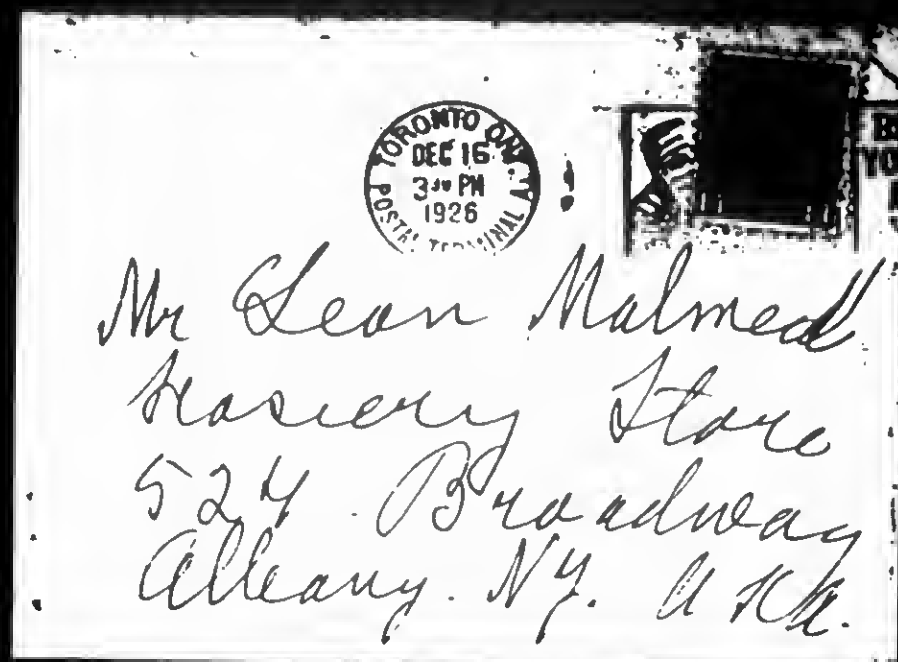 TORONTO ONT.
DEC 16
3 PM
1926
POSTAL TERMINAL
Mr Leon Malmed
Hosiery Store
524 Broadway
Albany. N.Y. U.S.A.